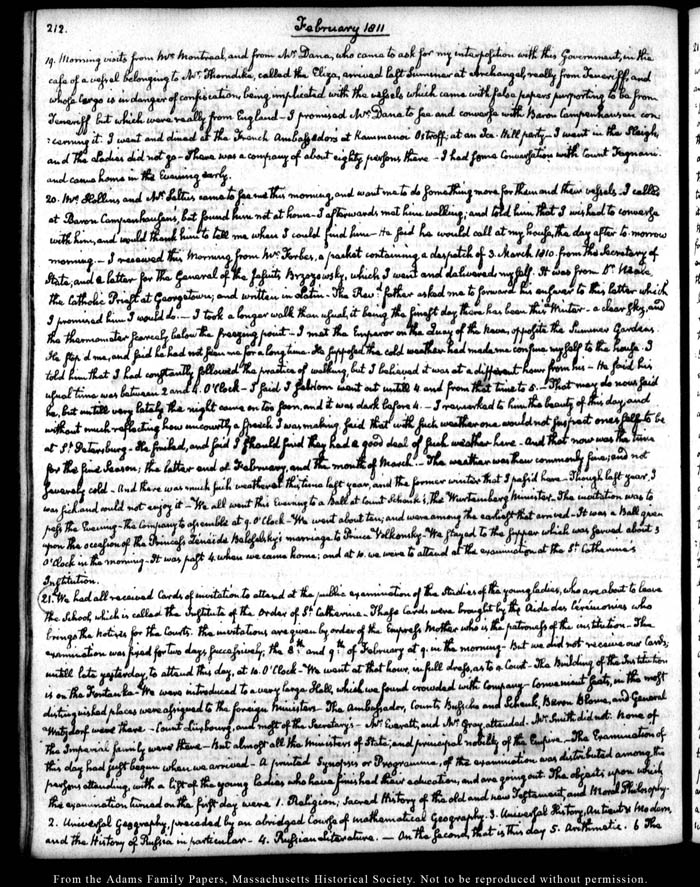 212.
February 1811
19. Morning visits from Mr. Montreal, and from Mr. Dana, who came to ask for my interposition with this Government, in the
case of a vessel belonging to Mr. Thorndike, called the Eliza, arrived last Summer at Archangel, really from Teneriff, and
whose Cargo is in danger of confiscation, being implicated with the vessels which came with false papers purporting to be from
Teneriff but which were really from England – I promised Mr. Dana to see and converse with Baron Campenhausen con-
:cerning it. I went and dined at the French Ambassadors at Kammenoi Ostroff; at an Ice-Hill party – I went in the Sleigh,
and the Ladies did not go – There was a company of about eighty persons there – I had some Conversation with Count
and came home in the Evening early.
20. Mr. Hollins and Mr. Saltus came to see me this morning, and want me to do something more for them and their vessels – I called
at Baron Campenhausens, but found him not at home – I afterwards met him walking; and told him that I wished to converse
with him, and would thank him to tell me when I could find him – He said he would call at my house, the day after to morrow
morning. – I received this Morning from Mr. Forbes, a packet containing a despatch of 3. March 1810. from the Secretary of
State; and a letter for the General of the Jesuits Brzozowsky, which I went and delivered myself. It was from Dr. Neale,
the Catholic Priest at Georgetown; and written in Latin – The Revd. father asked me to forward his answer to this letter which
I promised him I would do. – I took a longer walk than usual, it being the finest day there has been this Winter – a clear sky, and
the thermometer scarcely below the freezing point – I met the Emperor on the Quay of the Neva, opposite the Summer Gardens.
He stop'd me, and said he had not seen me for a long time. He supposed the cold weather had made me confine myself to the house. I
told him that I had constantly followed the practice of walking, but I believed it was at a different hour from his – He said his
usual time was between 2 and 4. O'Clock – I said I seldom went out untill 4 and from that time to 5. – That may do now said
he, but untill very lately the night came on too soon, and it was dark before 4. – I remarked to him the beauty of this day, and
without much reflecting how uncourtly a speech I was making said that with such weather one would not suspect ones self to be
at St. Petersburg – He smiled, and said I should find they had a good deal of such weather here – And that now was the time
for the fine Season; the latter end of February, and the month of March. – The weather was then commonly fine; and not
severely cold – And there was much such weather at this time last year, and the former winter that I pass'd here – Though last year, I
was sick and could not enjoy it – We all went this Evening to a Ball at Count Schenk's, the Wurtemberg Minister – The invitation was to
pass the Evening – the Company to assemble at 9. O'Clock – We went about ten; and were among the earliest that arrived – It was a Ball given
upon the occasion of the Princess Zeneide Beloselsky's marriage to Prince Volkonsky – We stayed to the supper which was served about 3
O'Clock in the morning – It was past 4. when we came home; and at 10. we were to attend at the examination at the St. Catherine's
Institution.
21. We had all received Cards of invitation to attend at the public examination of the Studies of the young ladies, who are about to leave
the School, which is called the Institute of the Order of St. Catherine. These Cards were brought by the Aide des Cérémonies who
brings the notices for the Courts. The invitations are given by order of the Empress Mother who is the patroness of the institution – The
examination was fixed for two days successively, the 8th and 9th of February at 9. in the morning – But we did not receive our Cards;
untill late yesterday, to attend this day, at 10. O'Clock – We went at that hour, in full dress, as to a Court – The Building of the Institution
is on the Fontanka – We were introduced to a very large Hall, which we found crowded with Company – Convenient seats, in the most
distinguished places were assigned to the foreign Ministers – The Ambassador, Count Bussche and Schenk, Baron Blome, and General
Watzdorf were there – Count Luxbourg, and most of the Secretary's – Mr. Everett, and Mr. Gray, attended. Mr. Smith did not. None of
the Imperial family were there – But almost all the Ministers of State, and principal nobility of the Empire – The Examination of
this day had just begun when we arrived – A printed Synopsis or Programme, of the examination was distributed among the
persons attending, with a list of the young ladies who have finished their education, and are going out. The objects upon which
the examination turned on the first day were 1. Religion; Sacred History of the old and new Testament, and Moral Philosophy.
2. Universal Geography, preceded by an abridged Course of mathematical Geography. 3. Universal History, Antient & Modern,
and the History of Russia in particular – 4. Russian Literature. – On the second, that is this day 5. Arithmetic. 6 The
From the Adams Family Papers, Massachusetts Historical Society. Not to be reproduced without permission.